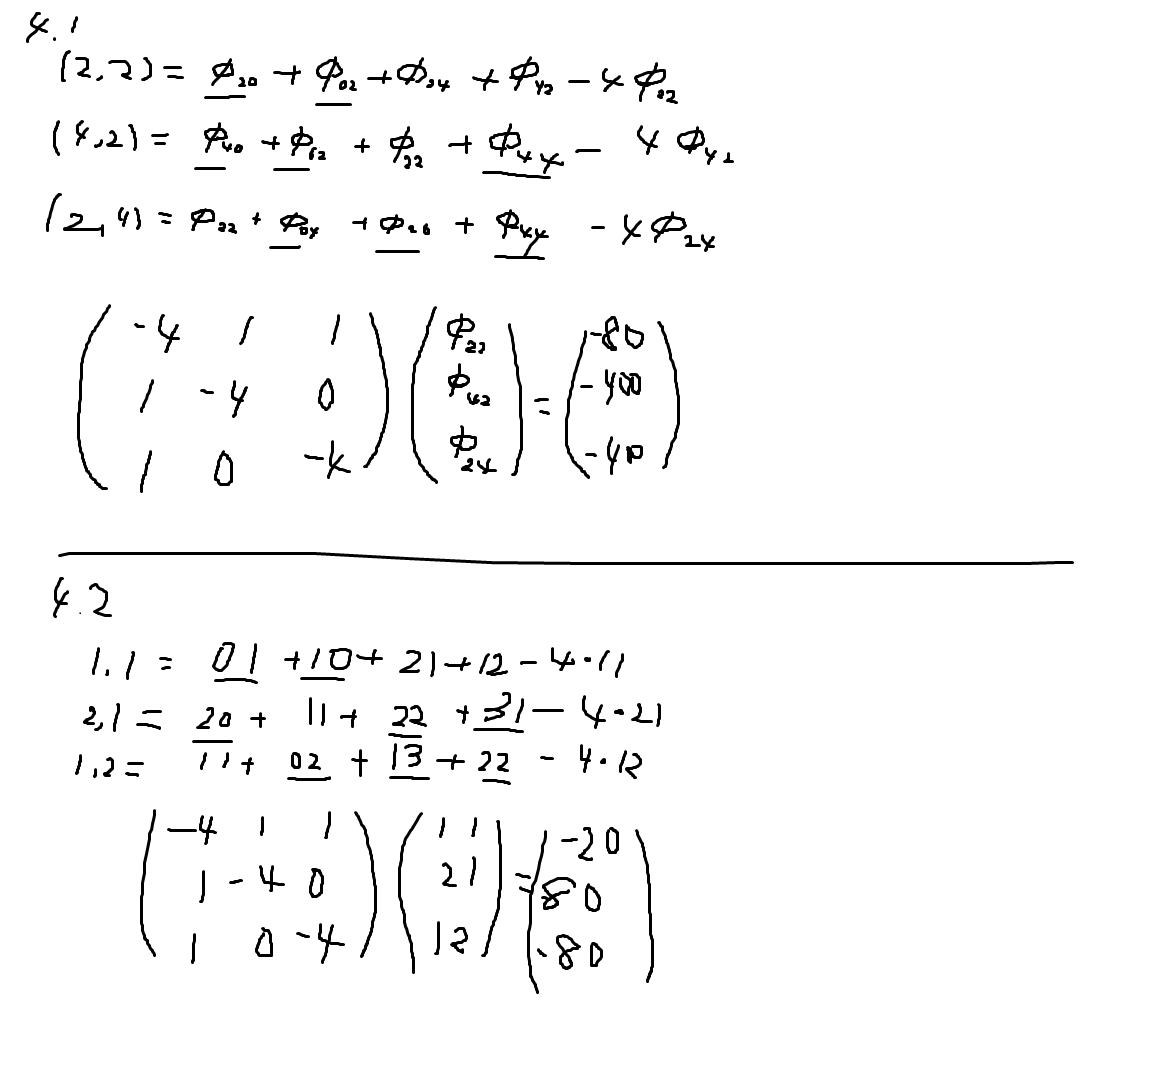 4.1
(2,2) = φ₂₀ + φ₀₂ + φ₂₄ + φ₄₂ - 4 φ₂₂
(4,2) = φ₄₀ + φ₆₂ + φ₂₂ + φ₄₄ - 4 φ₄₂
(2,4) = φ₂₂ + φ₀₄ + φ₂₆ + φ₄₄ - 4 φ₂₄
( -4 1 1 ) ( φ₂₂ ) ( -80 )
( 1 -4 0 ) ( φ₄₂ ) = ( -400 )
( 1 0 -4 ) ( φ₂₄ )
4.2
1,1 = 01 + 10 + 21 + 12 - 4·11
2,1 = 20 + 11 + 22 + 31 - 4·21
1,2 = 11 + 02 + 13 + 22 - 4·12
( -4 1 1 ) ( 11 ) ( -20 )
( 1 -4 0 ) ( 21 ) = ( 80 )
( 1 0 -4 ) ( 12 ) ( -80 )